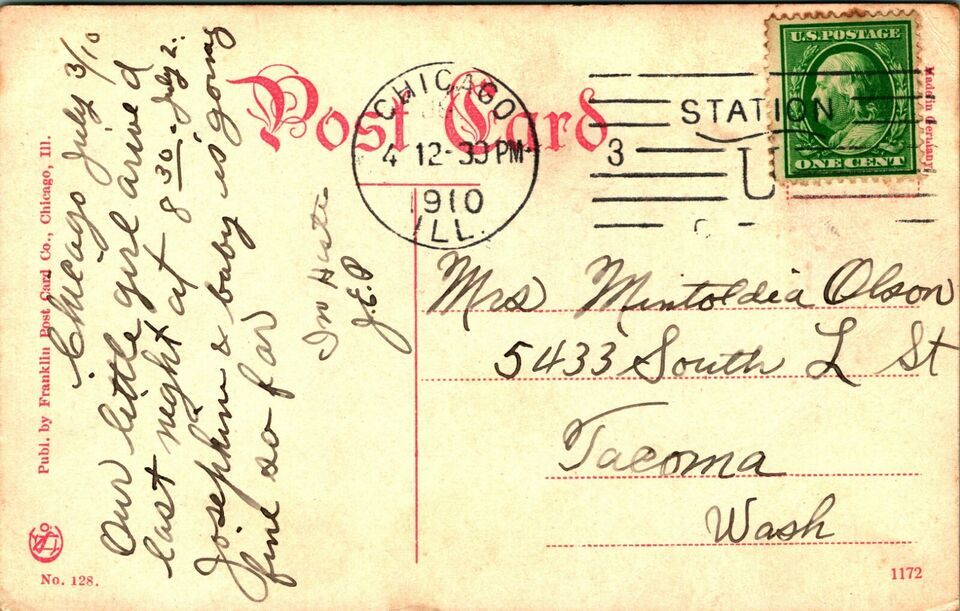 Post Card
CHICAGO
4 12-30 PM
1910
ILL.
STATION
3
U
U.S. POSTAGE
ONE CENT
Made in Germany
Publ. by Franklin Post Card Co., Chicago, Ill.
Chicago July 3/10
Our little girl arrived
last night at 8 30 - July 2.
Josephine & baby is going
fine so far
In Haste
J.E.P
Mrs Mintoldia Olson
5433 South L St
Tacoma
Wash
No. 128.
1172